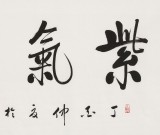 紫氣
丁仲夏於